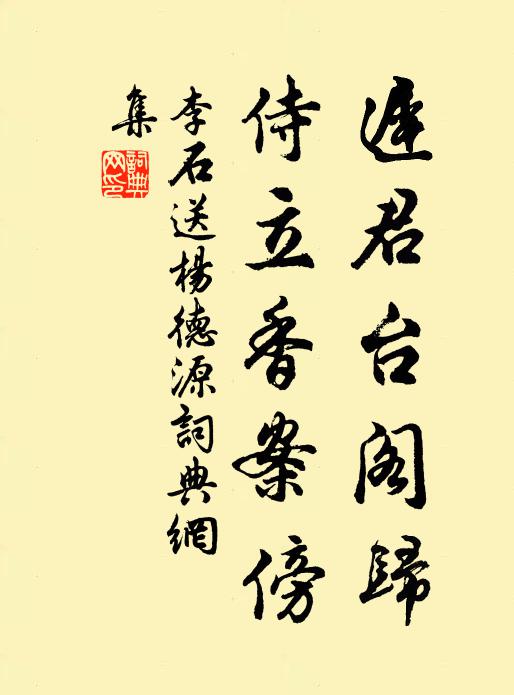 遲君台阁歸
侍立香案傍
李石送楊德源詞典網
集
詞典网印